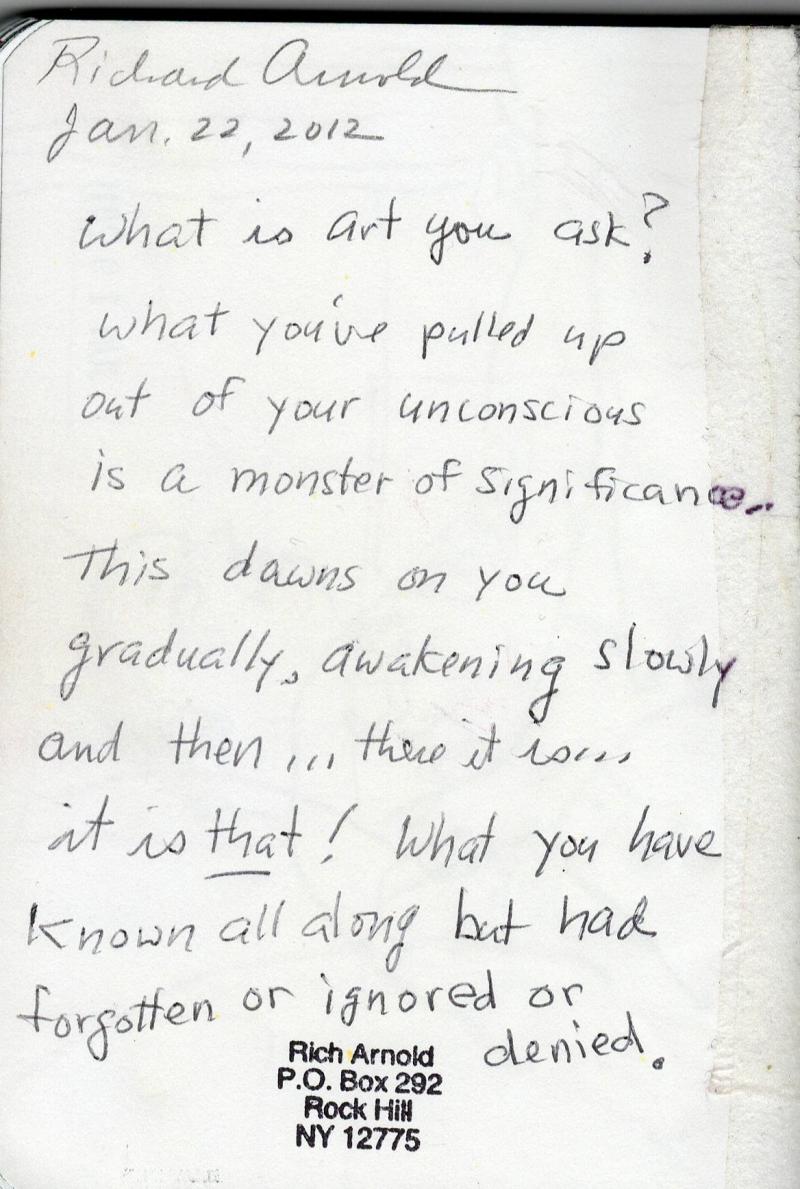 Richard Arnold
Jan. 22, 2012
What is art you ask?
What you've pulled up
out of your unconscious
is a monster of significance..
This dawns on you
gradually, awakening slowly
and then ... there it is...
it is that! What you have
known all along but had
forgotten or ignored or
denied.
Rich Arnold
P.O. Box 292
Rock Hill
NY 12775